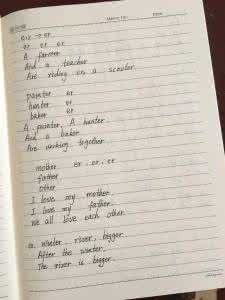 er → er
er er er
A farmer
And a teacher
Are riding on a scooter.
painter er
hunter er
baker er
A painter, A hunter
And a baker
Are working together
mother er . er . er
father
other
I love my mother.
I love my father.
We all love each other.
winter, river, bigger.
After the winter.
The river is bigger.